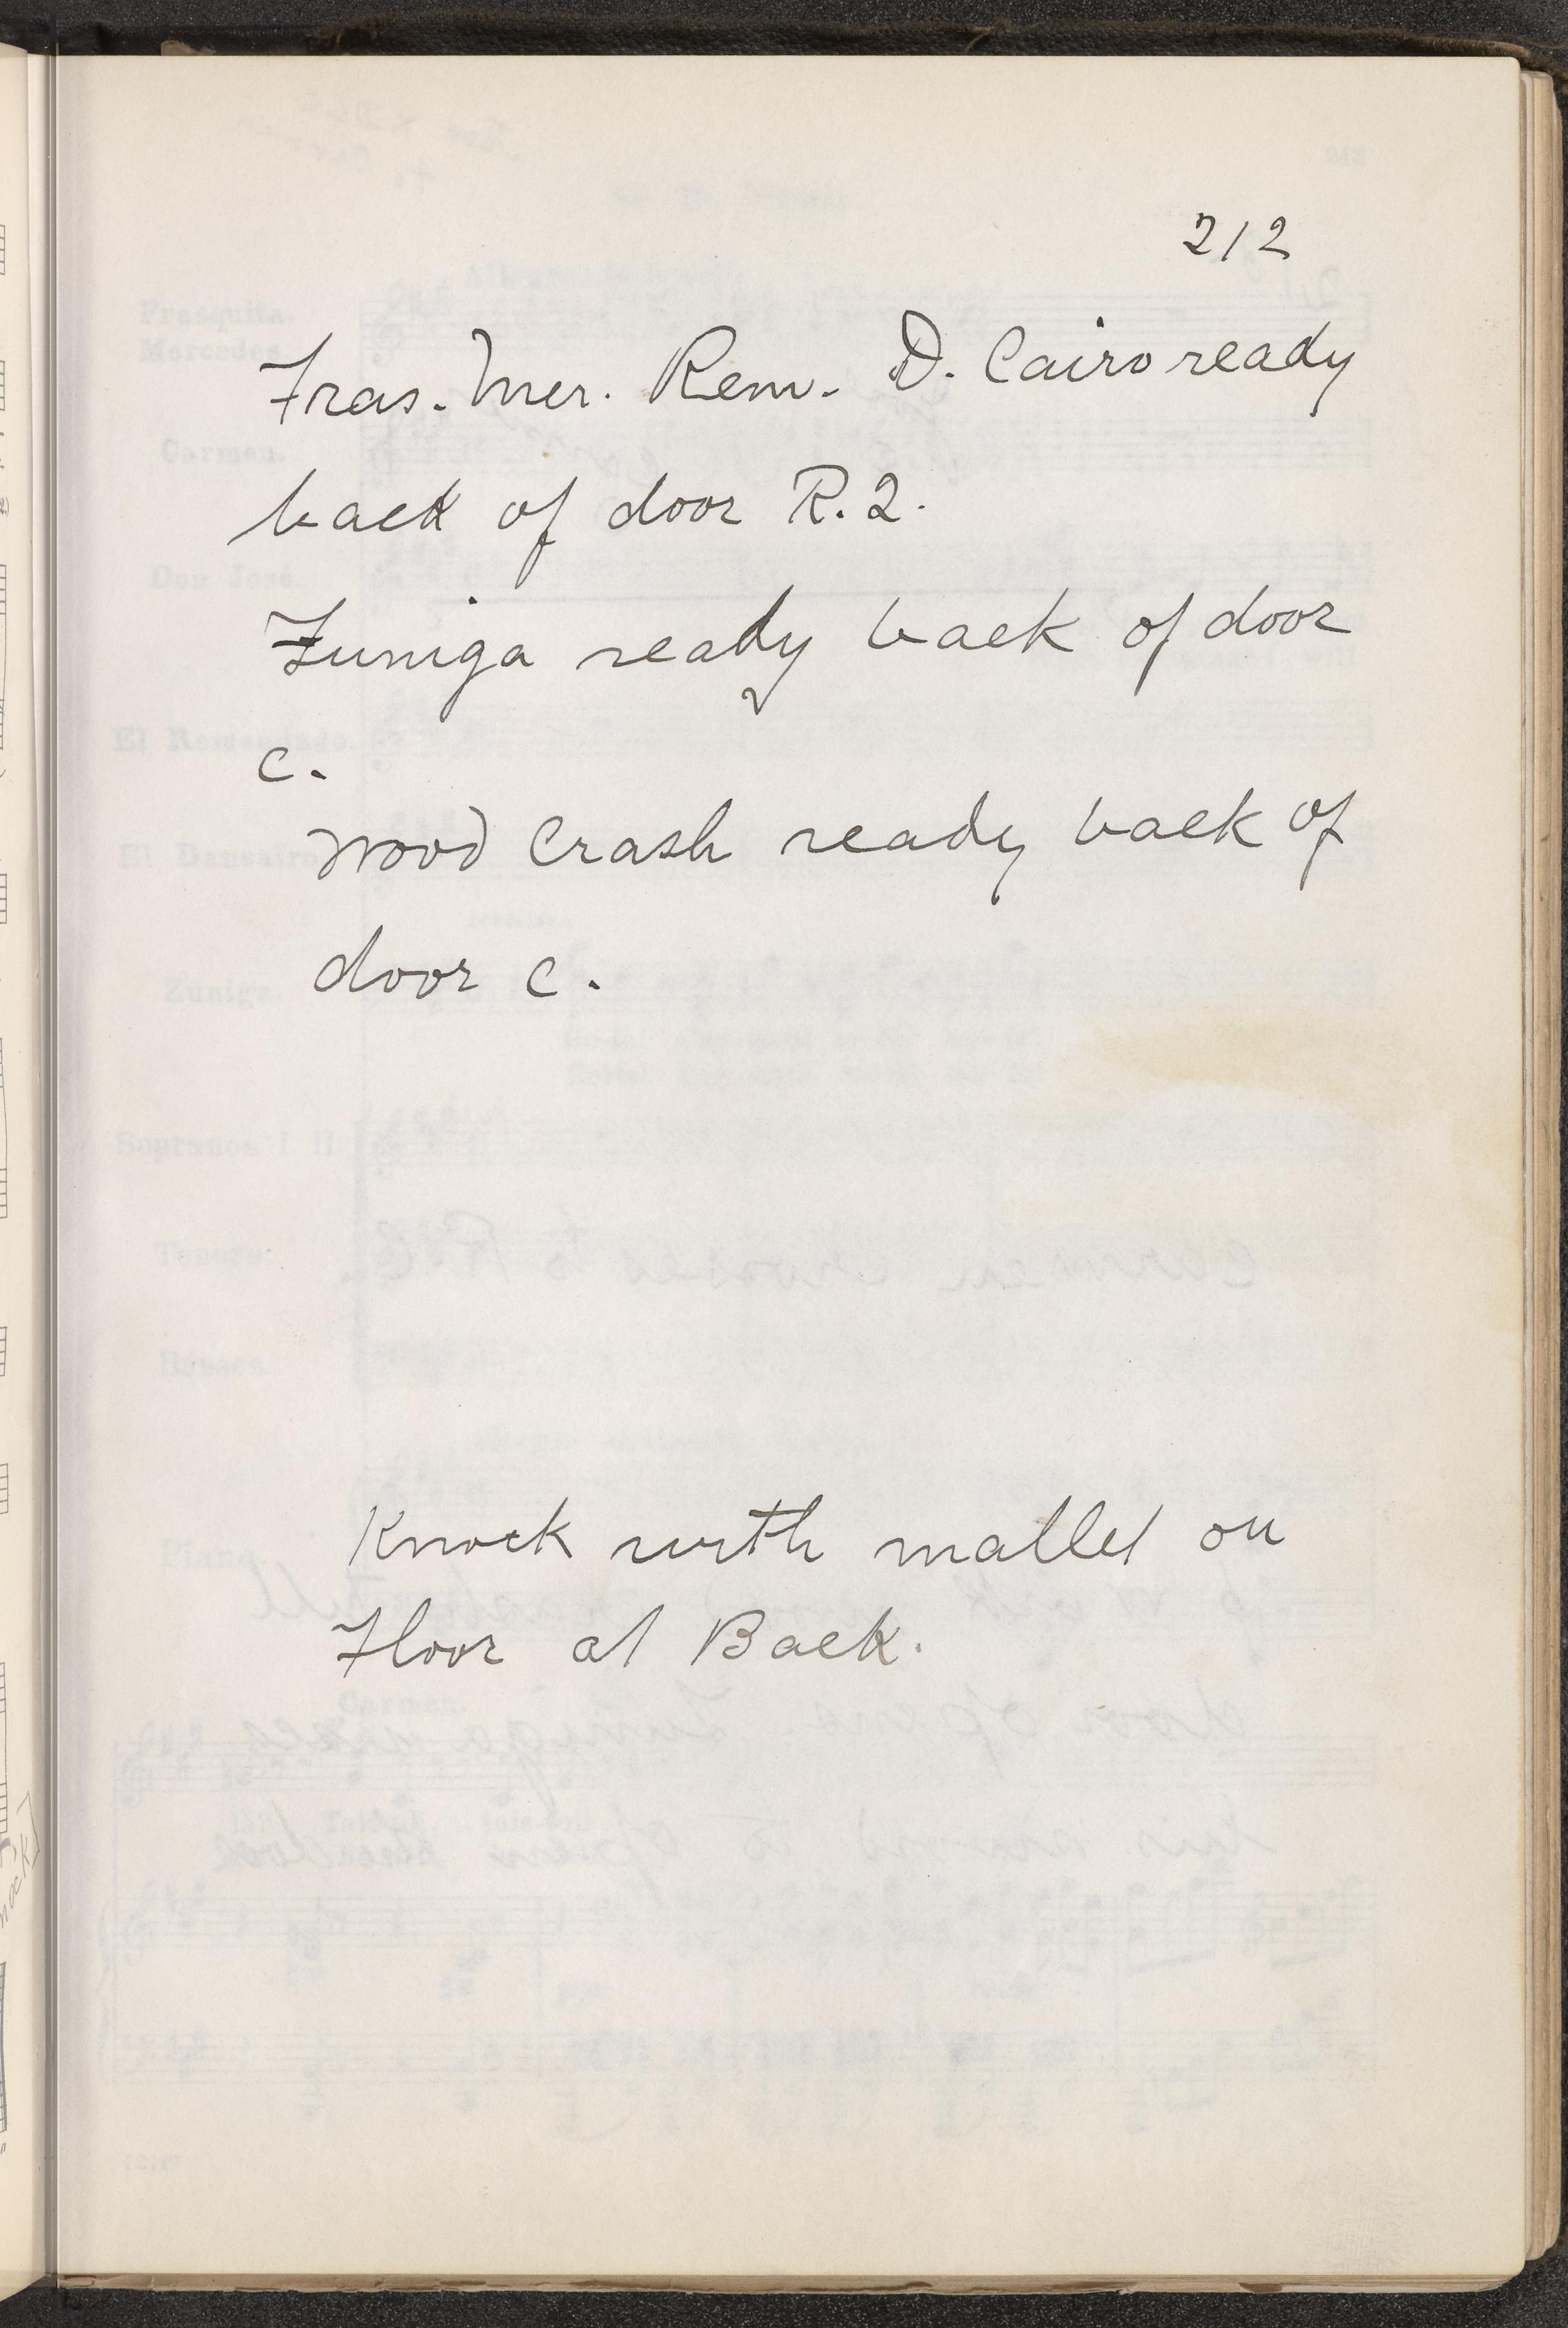 212
Fras. Mer. Rem. D. Cairo ready
back of door R.2.
Zuniga ready back of door
C.
Wood Crash ready back of
door C.
Knock with mallet on
Floor at Back.